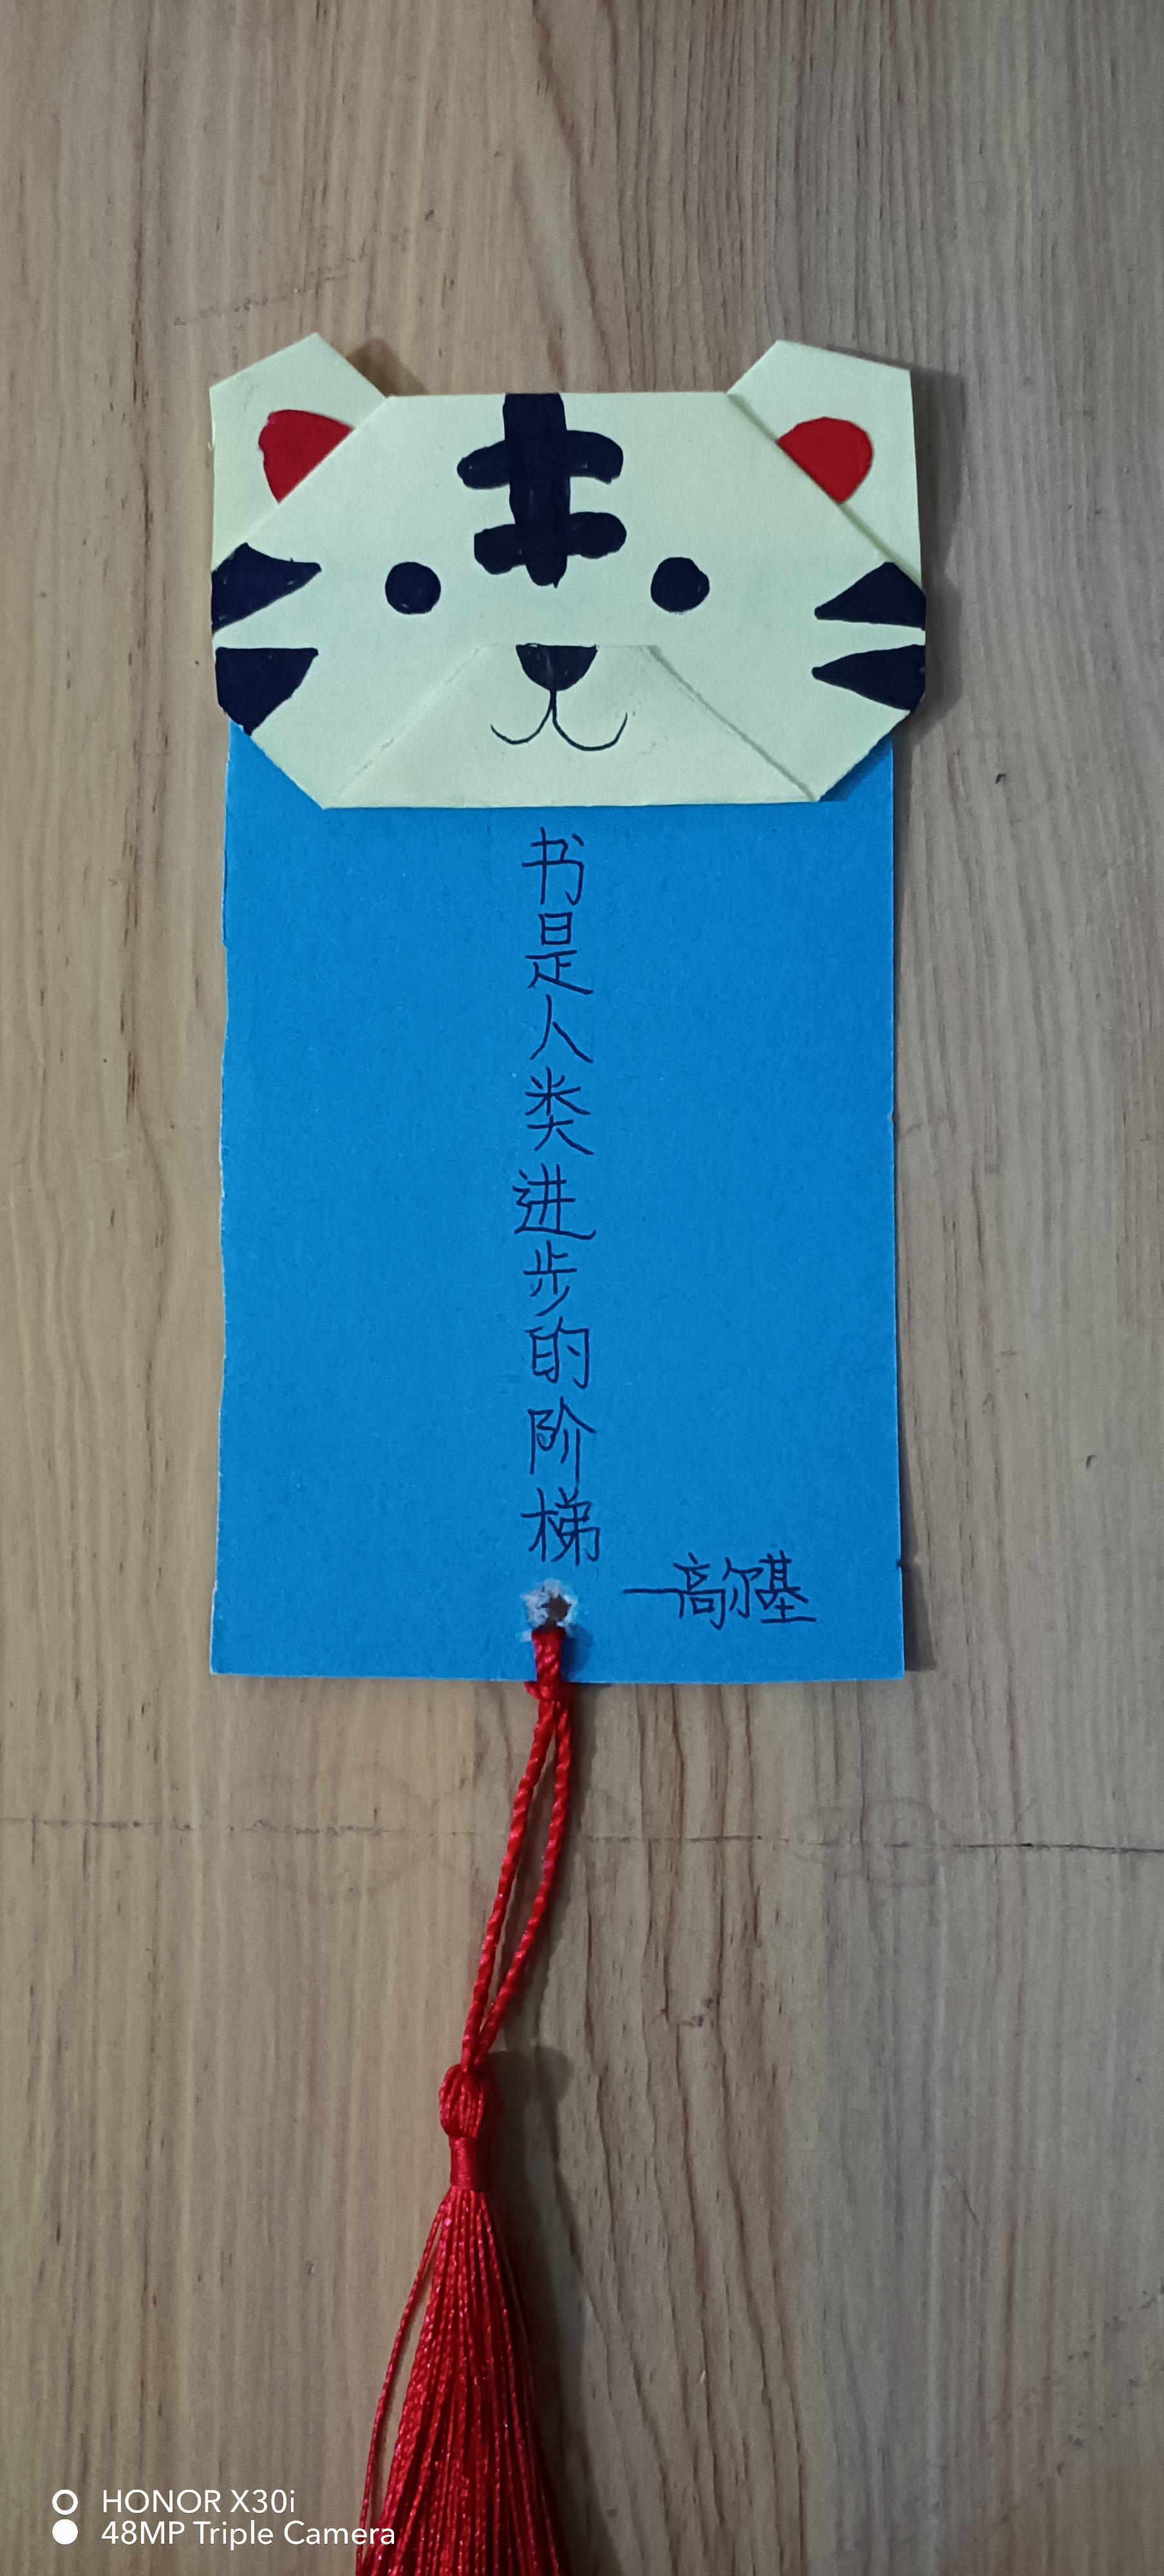 书是人类进步的阶梯
—高尔基
HONOR X30i
48MP Triple Camera